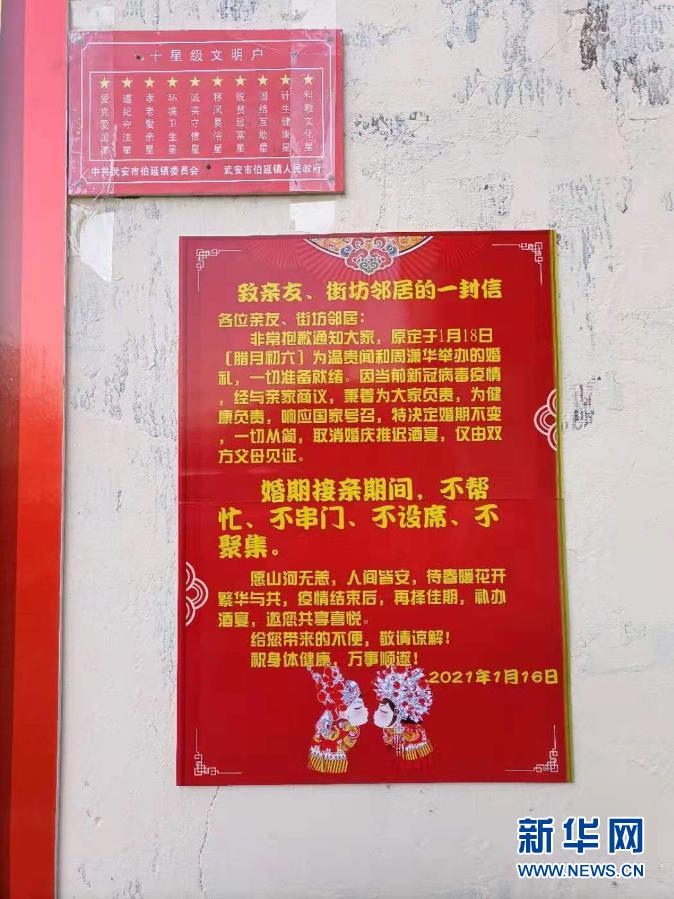 十星级文明户
爱党爱国星
遵纪守法星
孝老爱亲星
环境卫生星
诚实守信星
移风易俗星
脱贫致富星
团结互助星
计生健康星
科教文化星
中共武安市伯延镇委员会 武安市伯延镇人民政府
致亲友、街坊邻居的一封信
各位亲友、街坊邻居：
非常抱歉通知大家，原定于1月18日
（腊月初六）为温贵闻和周潇华举办的婚
礼，一切准备就绪。因当前新冠病毒疫情
，经与亲家商议，秉着为大家负责，为健
康负责，响应国家号召，特决定婚期不变
，一切从简，取消婚庆推迟酒宴，仅由双
方父母见证。
婚期接亲期间，不帮
忙、不串门、不设席、不
聚集。
愿山河无恙，人间皆安，待春暖花开
繁华与共，疫情结束后，再择佳期，补办
酒宴，邀您共享喜悦。
给您带来的不便，敬请谅解！
祝身体健康，万事顺遂！
2021年1月16日
新华网
WWW.NEWS.CN